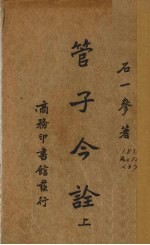 石一參著
管子今詮
上
商務印書館發行